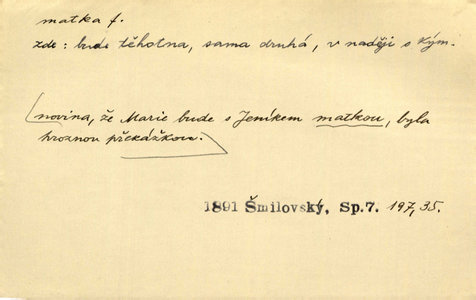 matka f.
zde: bude těhotna, sama druhá, v naději s kým.
novina, že Marie bude s Jeníkem matkou, byla
hroznou překážkou.
1891 Šmilovský, Sp.7. 197,35.